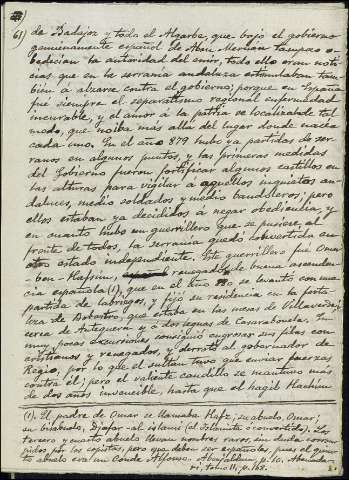 61)
de Badajoz y todo el Algarbe, que bajo el gobierno
genuinamente español de Aben Meruan tampoco o-
bedecian la autoridad del emir, todo ello eran noti-
cias que en la serranía andaluza estimulaban tam-
bién a alzarse contra el gobierno; porque en España
fué siempre el separatismo regional enfermedad
incurable, y el amor á la patria se localiza de tal
modo, que no iba más allá del lugar donde nacía
cada uno. En el año 879 hubo ya partidas de ser-
ranos en algunos puntos, y las primeras medidas
del Gobierno fueron, fortificar algunos castillos en
las alturas para vigilar a aquellos inquietos an-
daluces, medio soldados y medio bandoleros; pero
ellos estaban ya decididos a negar obediencia, y
en cuanto hubo un guerrillero que se pusiese al
frente de todos, la serranía quedó convertida en
otro estado independiente. Este guerrillero fué Omar-
ben-Hafsun, renegado de buena ascenden-
cia española (1), que en el año 880 se levantó con una
partida de labriegos, y fijó su residencia en la forta-
leza de Bobastro, que estaba en las mesas de Villaverde,
cerca de Antequera y á dos leguas de Casarabonela. En
muy pocas excursiones consiguió engrosar sus filas con
cristianos y renegados, y derrotó al gobernador de
Regio, por lo que el sultán tuvo que enviar fuerzas
contra él; pero el valiente caudillo se mantuvo más
de dos años invencible, hasta que el hagib Hachim
(1). El padre de Omar se llamaba Hafz; su abuelo, Omar;
su bisabuelo, Djafar-al-islami (el Islamita ó convertido). Los
tercero y cuarto abuelo llevan nombres raros, sin duda corrom-
pidos por los copistas, pero que deben ser españoles, pues el quin-
to abuelo era un Conde Alfonso. p. 10.
tomo II, p. 168.